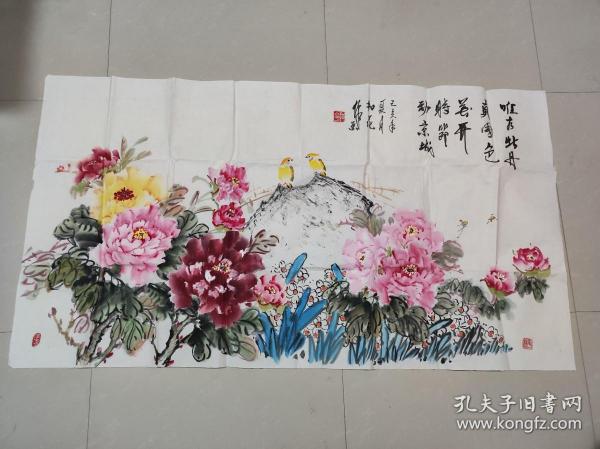 唯有牡丹
真国色
花开
时节
动京城
己亥年
夏月
孔夫子旧书网
www.kongfz.com